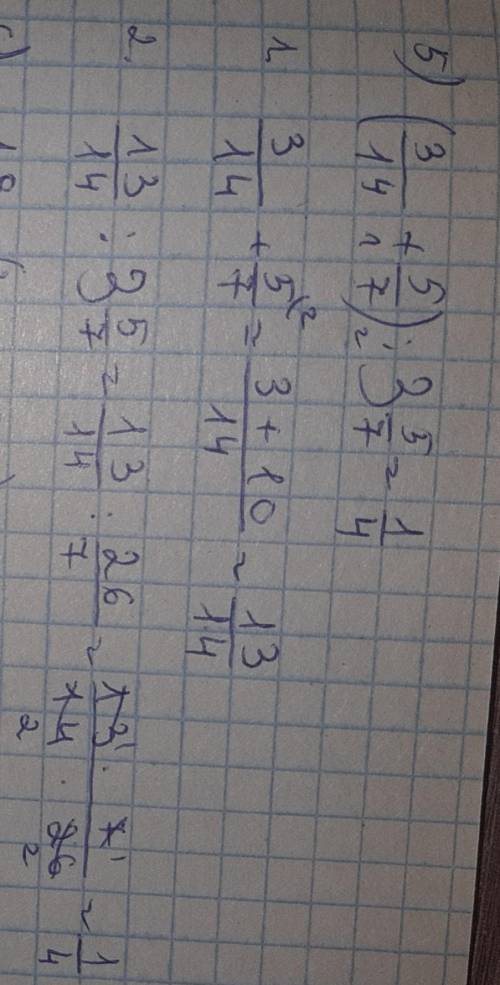 5) (3/14 + 5/7) : 3 5/7 = 1/4
1 2
1. 3/14 + 5/7 \2 = (3 + 10)/14 = 13/14
2. 13/14 : 3 5/7 = 13/14 : 26/7 = (13 1 · 7 1)/(14 2 · 26 2) = 1/4